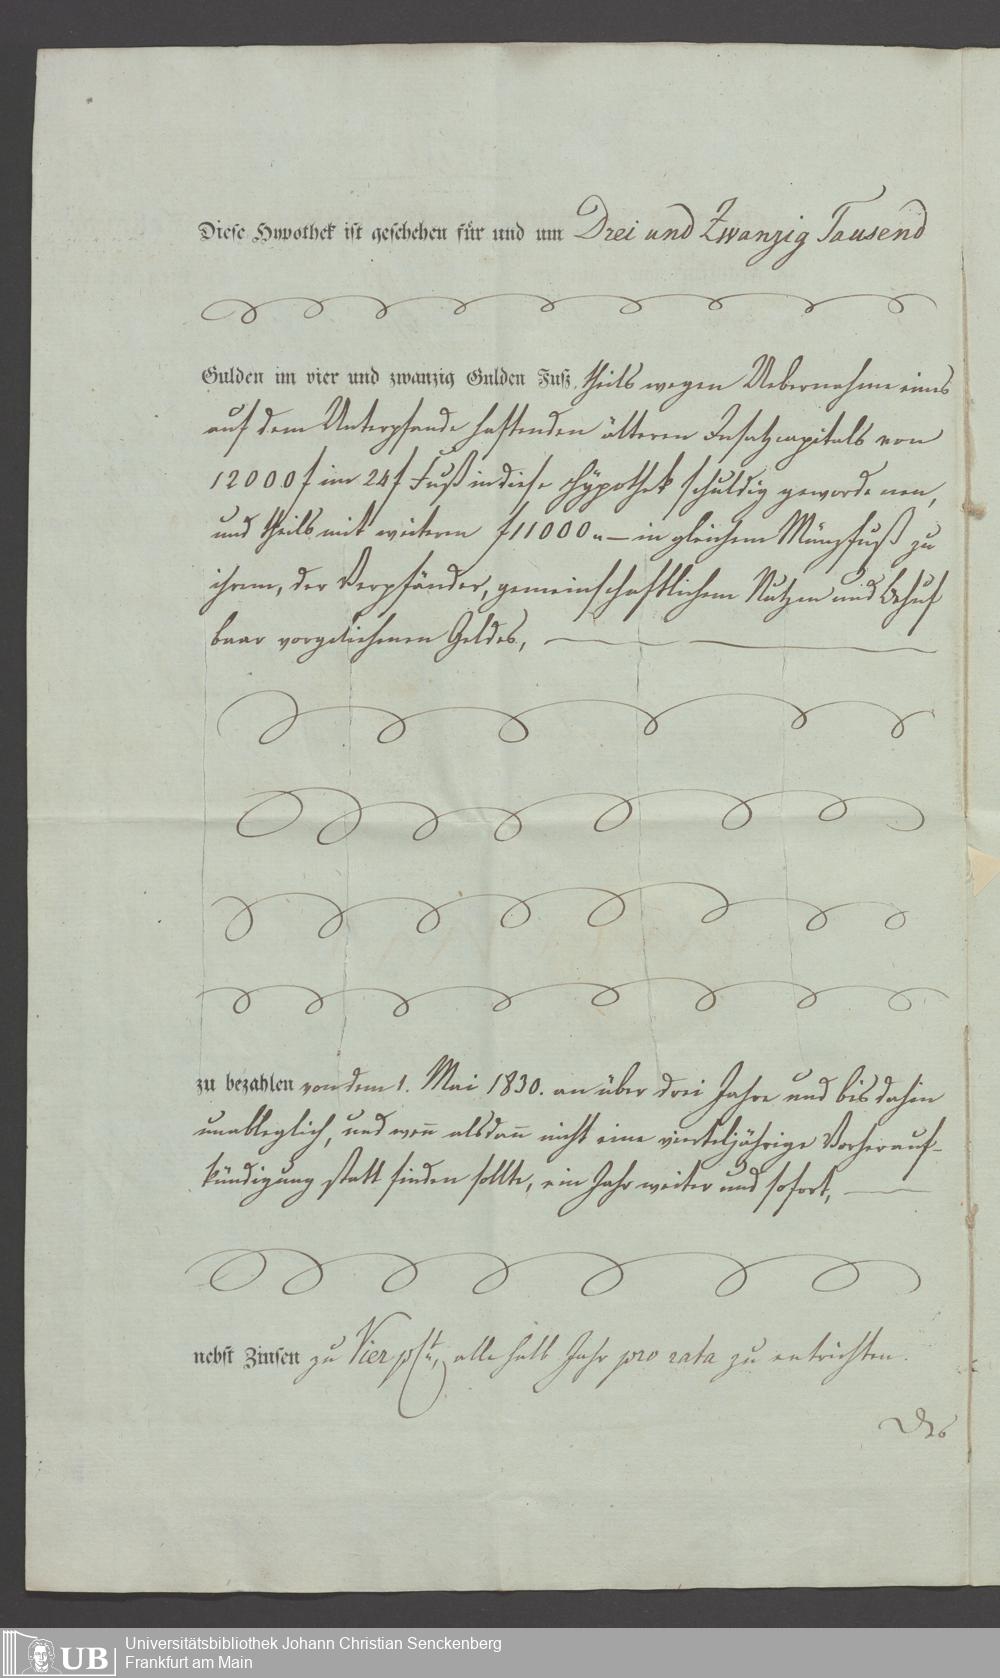 Diese Hypothek ist geschehen für und um Drei und Zwanzig Tausend
Gulden im vier und zwanzig Gulden Fuß, theils wegen Uebernahme eines
auf dem Unterpfande haftenden älteren Insatzcapitals von
12000 f im 24 f Fuß in diese Hÿpothek schuldig gewordenen,
und theils mit weitern f 11000 „ — in gleichem Münzfuß zu
ihrem, der Verpfänder, gemeinschaftlichem Nutzen und Behuf
baar vorgeliehenen Geldes,
zu bezahlen von dem 1. Mai 1830. an über drei Jahre und bis dahin
unableglich, und weñ alsdañ nicht eine vierteljährige Vorherauf-
kündigung statt finden sollte, ein Jahr weiter und sofort,
nebst Zinsen zu Vier pCt, alle halb Jahr pro rata zu entrichten.
Des
UB
Universitätsbibliothek Johann Christian Senckenberg
Frankfurt am Main